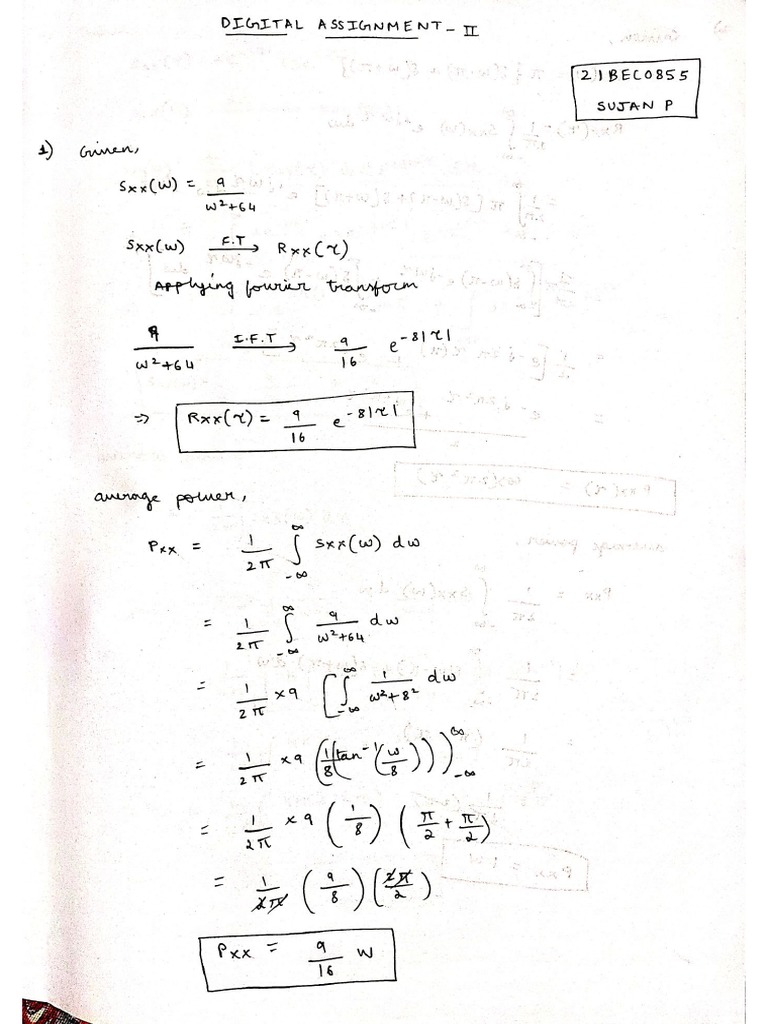 DIGITAL ASSIGNMENT - II
21BEC0855
SUJAN P
1) Given,
Sxx(ω) = 9/(ω²+64)
Sxx(ω) —F.T→ Rxx(τ)
Applying fourier transform
9/(ω²+64) —I.F.T→ 9/16 e^(-8|τ|)
⇒ Rxx(τ) = 9/16 e^(-8|τ|)
average power,
Pxx = 1/2π ∫_{-∞}^{∞} Sxx(ω) dω
= 1/2π ∫_{-∞}^{∞} 9/(ω²+64) dω
= 1/2π × 9 [∫_{-∞}^{∞} 1/(ω²+8²) dω
= 1/2π × 9 (1/8 (tan⁻¹(ω/8)))_{-∞}^{∞}
= 1/2π × 9 (1/8) (π/2 + π/2)
= 1/2π (9/8) (2π/2)
Pxx = 9/16 W